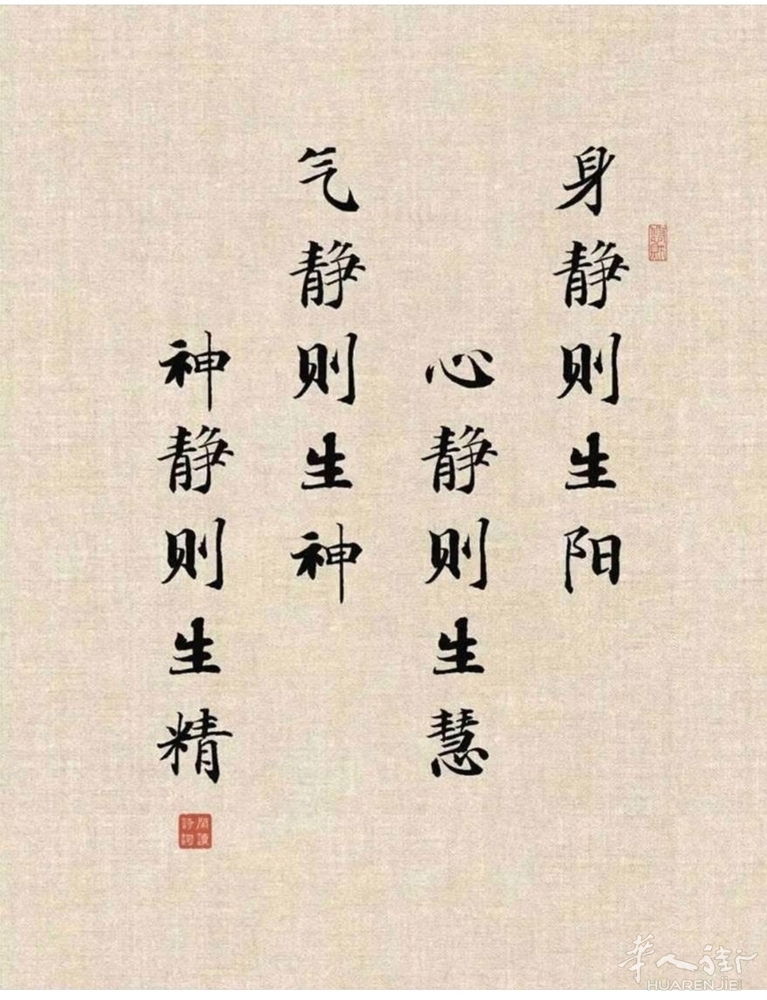 身静则生阳
心静则生慧
气静则生神
神静则生精
閒讀
詩詞
華人街
HUARENJIE